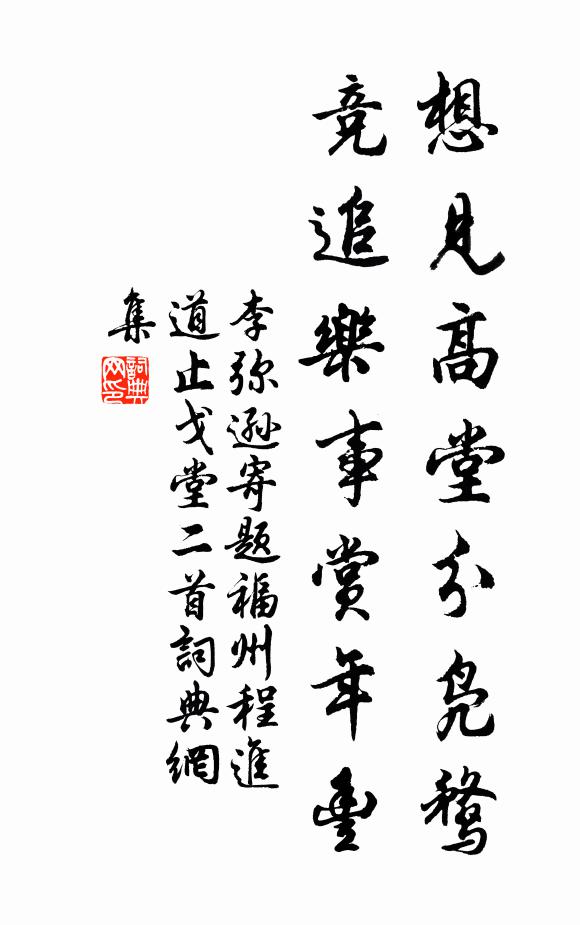 想見高堂分鳧鶩
竞追樂事賞年豊
李弥遜寄題福州程進
道止戈堂二首詞典網
集
詞典
网印